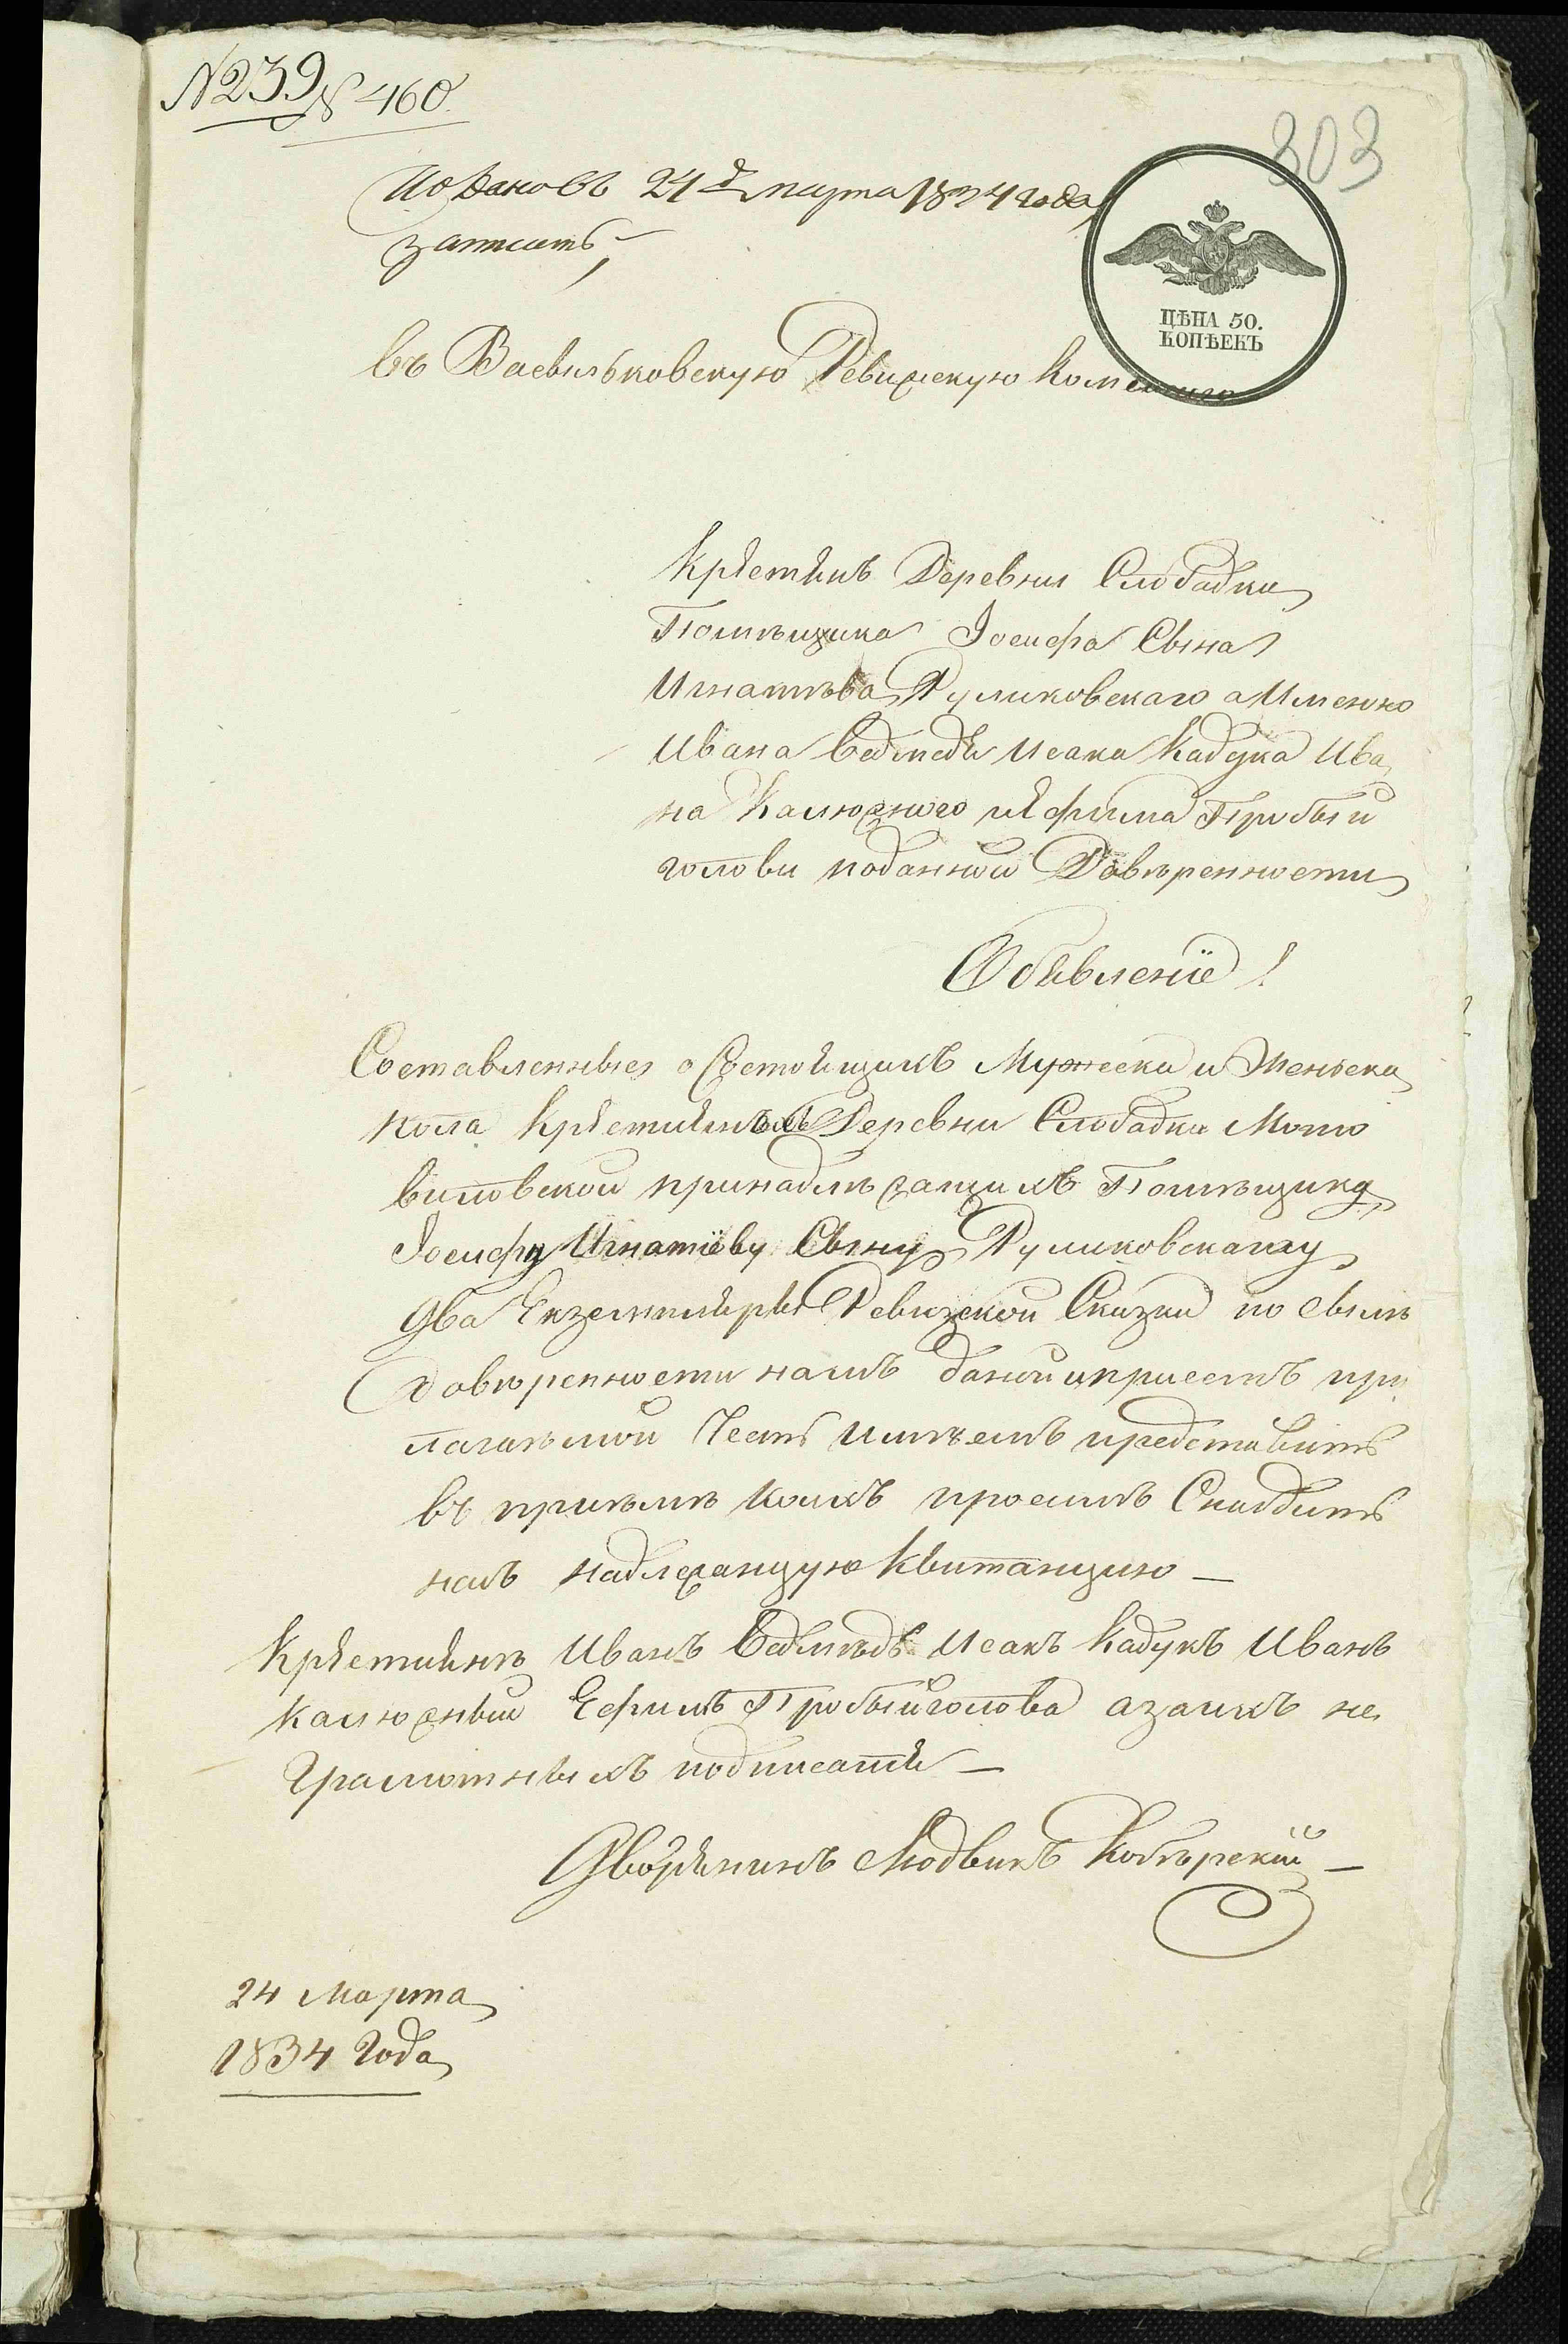 №239 № 460
303
Подановъ 24 д. марта 1834 года
записать
ЦѢНА 50.
КОПѢЕКЪ
въ Васильковскую Ревизскую Комисию
Крястянъ Деревни Слободки
Помѣщика Іосифа Сына
Игнатѣва Руликовскаго а Именно
Ивана Ведмедя Исака Кадука Ива
на Калюжного иЯфима Пробый
голови поданной Довѣренности
Объявленіе!
Составленные о Состоящихъ Мужеска и Женьска
пола Крястиянъ Деревни Слободки Мото
виловской принадлѣжащихъ Помѣщику
Іосифу Игнатіеву Сыну Руликовскаму
два Екземпляры Ревизской Сказки по сылѣ
довѣренности намъ даной иприсемъ при
лагаѣмой Честь имѣемъ представить
въ пріѣмѣ коихъ просимъ Снабдить
насъ надлежащую Квитанцию —
Крястиянѣ Иванъ Ведмѣдь Исакъ Кадукъ Иванъ
Калюжный Ефимъ Пробыйголова азаихъ не
грамотныхъ подписался —
Дворянинъ Людвикъ Кобѣрскій —
24 Марта
1834 Года